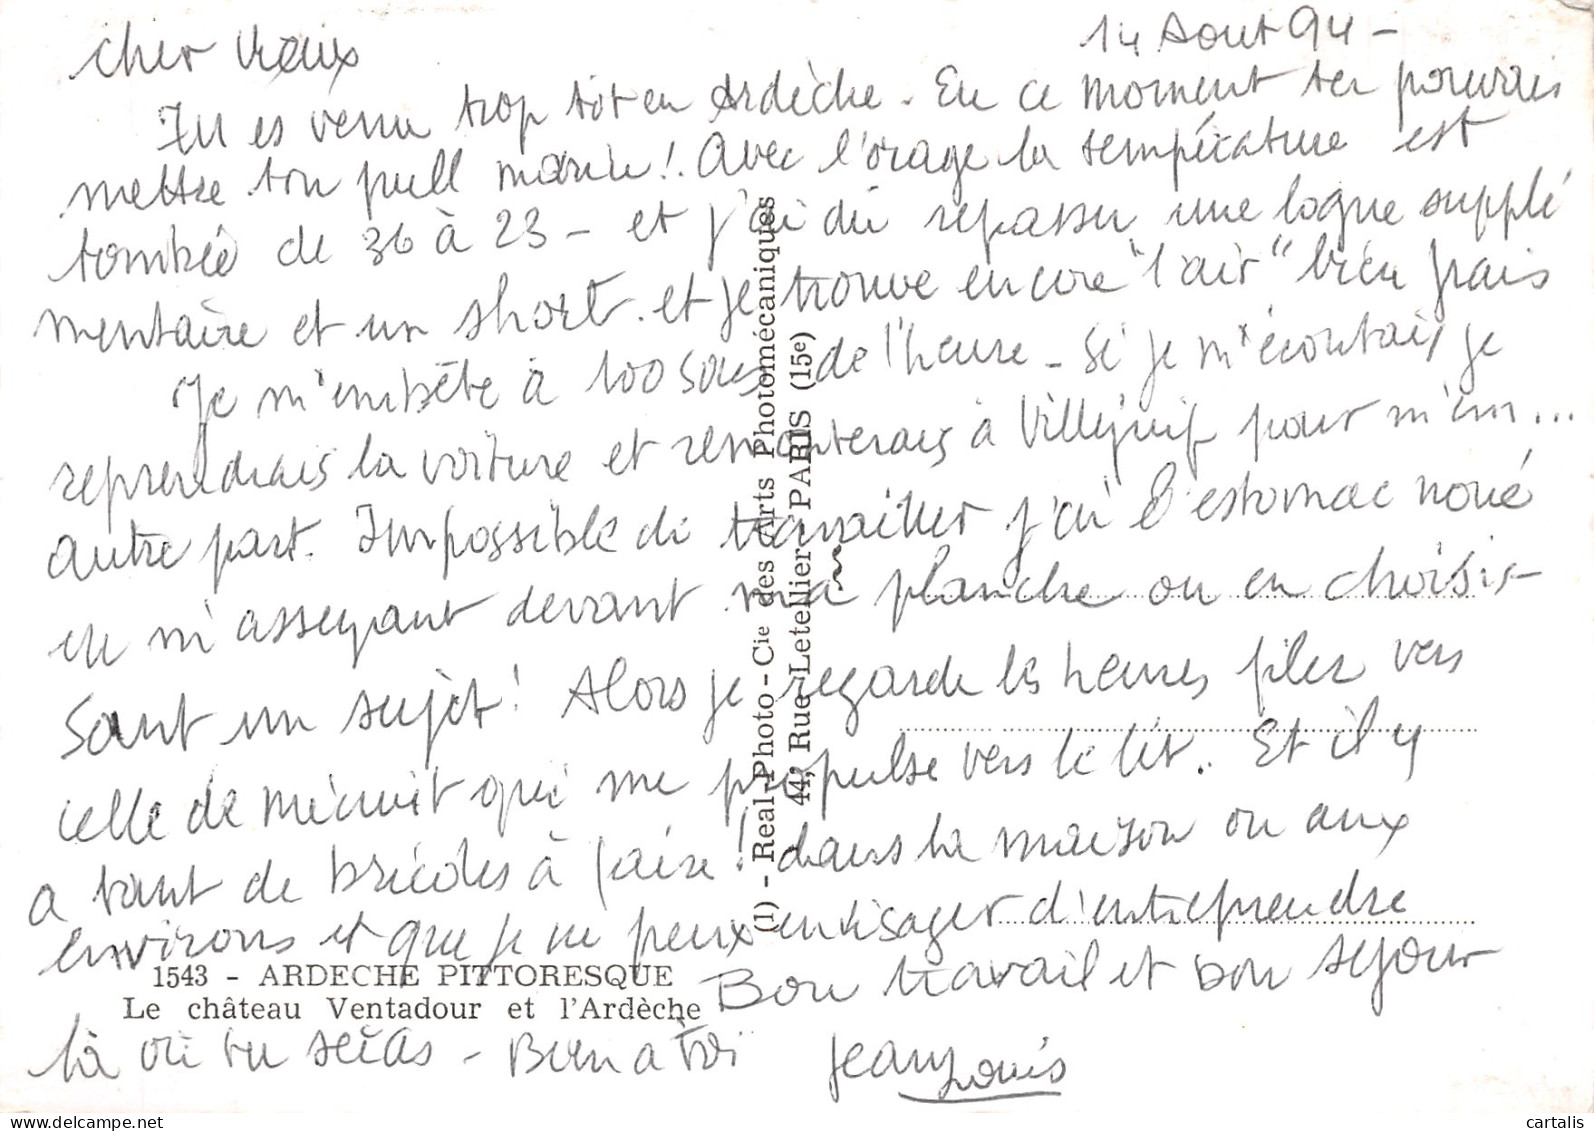 14 Aout 94 -
Cher vieux
Tu es venu trop tôt en Ardèche. En ce moment tu pourrais
mettre ton pull marin! Avec l'orage la température est
tombée de 36 à 23 - et j'ai dû repasser une logue supplé
mentaire et un short. et je trouve encore "l'air" bien frais
Je m'embête à 100 sous de l'heure - Si je m'écoutais je
reprendrais la voiture et remonterais à Villejuif pour m'en...
autre part. Impossible de travailler j'ai l'estomac noué
en m'asseyant devant ma planche ou en choisis-
sant un sujet! Alors je regarde les heures filer vers
celle de minuit qui me propulse vers le lit.. Et il y
a tant de bricoles à faire! dans la maison ou aux
environs et que je ne peux envisager d'entreprendre
Bon travail et bon séjour
là où tu seras - Bien à toi
Jean Louis
1543 - ARDECHE PITTORESQUE
Le château Ventadour et l'Ardèche
(1) - Real-Photo - Cie des Arts Photomécaniques
44, Rue Letellier - PARIS (15e)
cartalis
delcampe.net